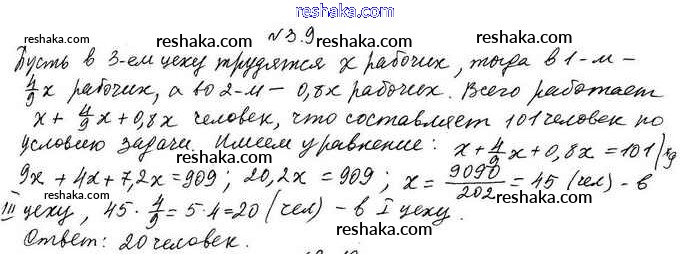 reshaka.com
reshaka.com №3.9 reshaka.com
Пусть в 3-ем цеху трудятся x рабочих, тогда в 1-м -
4/9 x рабочих, а во 2-м - 0,8x рабочих. Всего работает
reshaka.com reshaka.com reshaka.com
x + 4/9 x + 0,8x человек, что составляет 101 человек по
условию задачи. Имеем уравнение: x + 4/9 x + 0,8x = 101 |·9
reshaka.com reshaka.com
9x + 4x + 7,2x = 909; 20,2x = 909; x = 9090/202 = 45 (чел) - в
III цеху, 45 · 4/9 = 5·4 = 20 (чел) - в I цеху.
reshaka.com reshaka.com reshaka.com
Ответ: 20 человек.
reshaka.com